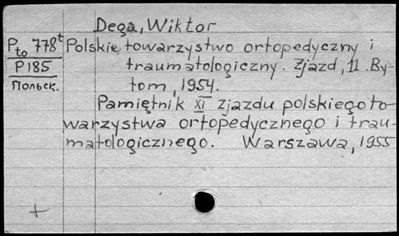 Dega, Wiktor
Pto 778t Polskie towarzystwo ortopedyczny i
P185 traumatologiczny. Zjazd, 11. By-
Польск. tom, 1954.
Pamiętnik XI zjazdu polskiego to-
warzystwa ortopedycznego i trau-
matologicznego. Warszawa, 1955